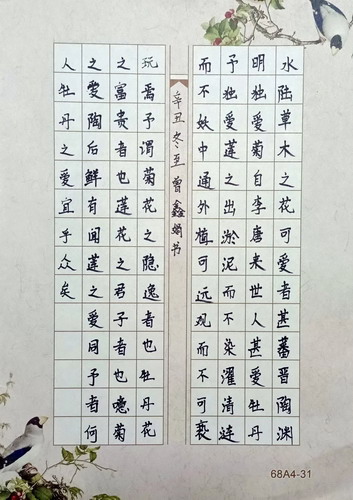 水陆草木之花可爱者甚蕃晋陶渊
明独爱菊自李唐来世人甚爱牡丹
予独爱莲之出淤泥而不染濯清涟
而不妖中通外植可远观而不可亵
辛丑冬至 曾鑫娟书
玩焉予谓菊花之隐逸者也牡丹花
之富贵者也莲花之君子者也噫菊
之爱陶后鲜有闻莲之爱同予者何
人牡丹之爱宜乎众矣
68A4-31